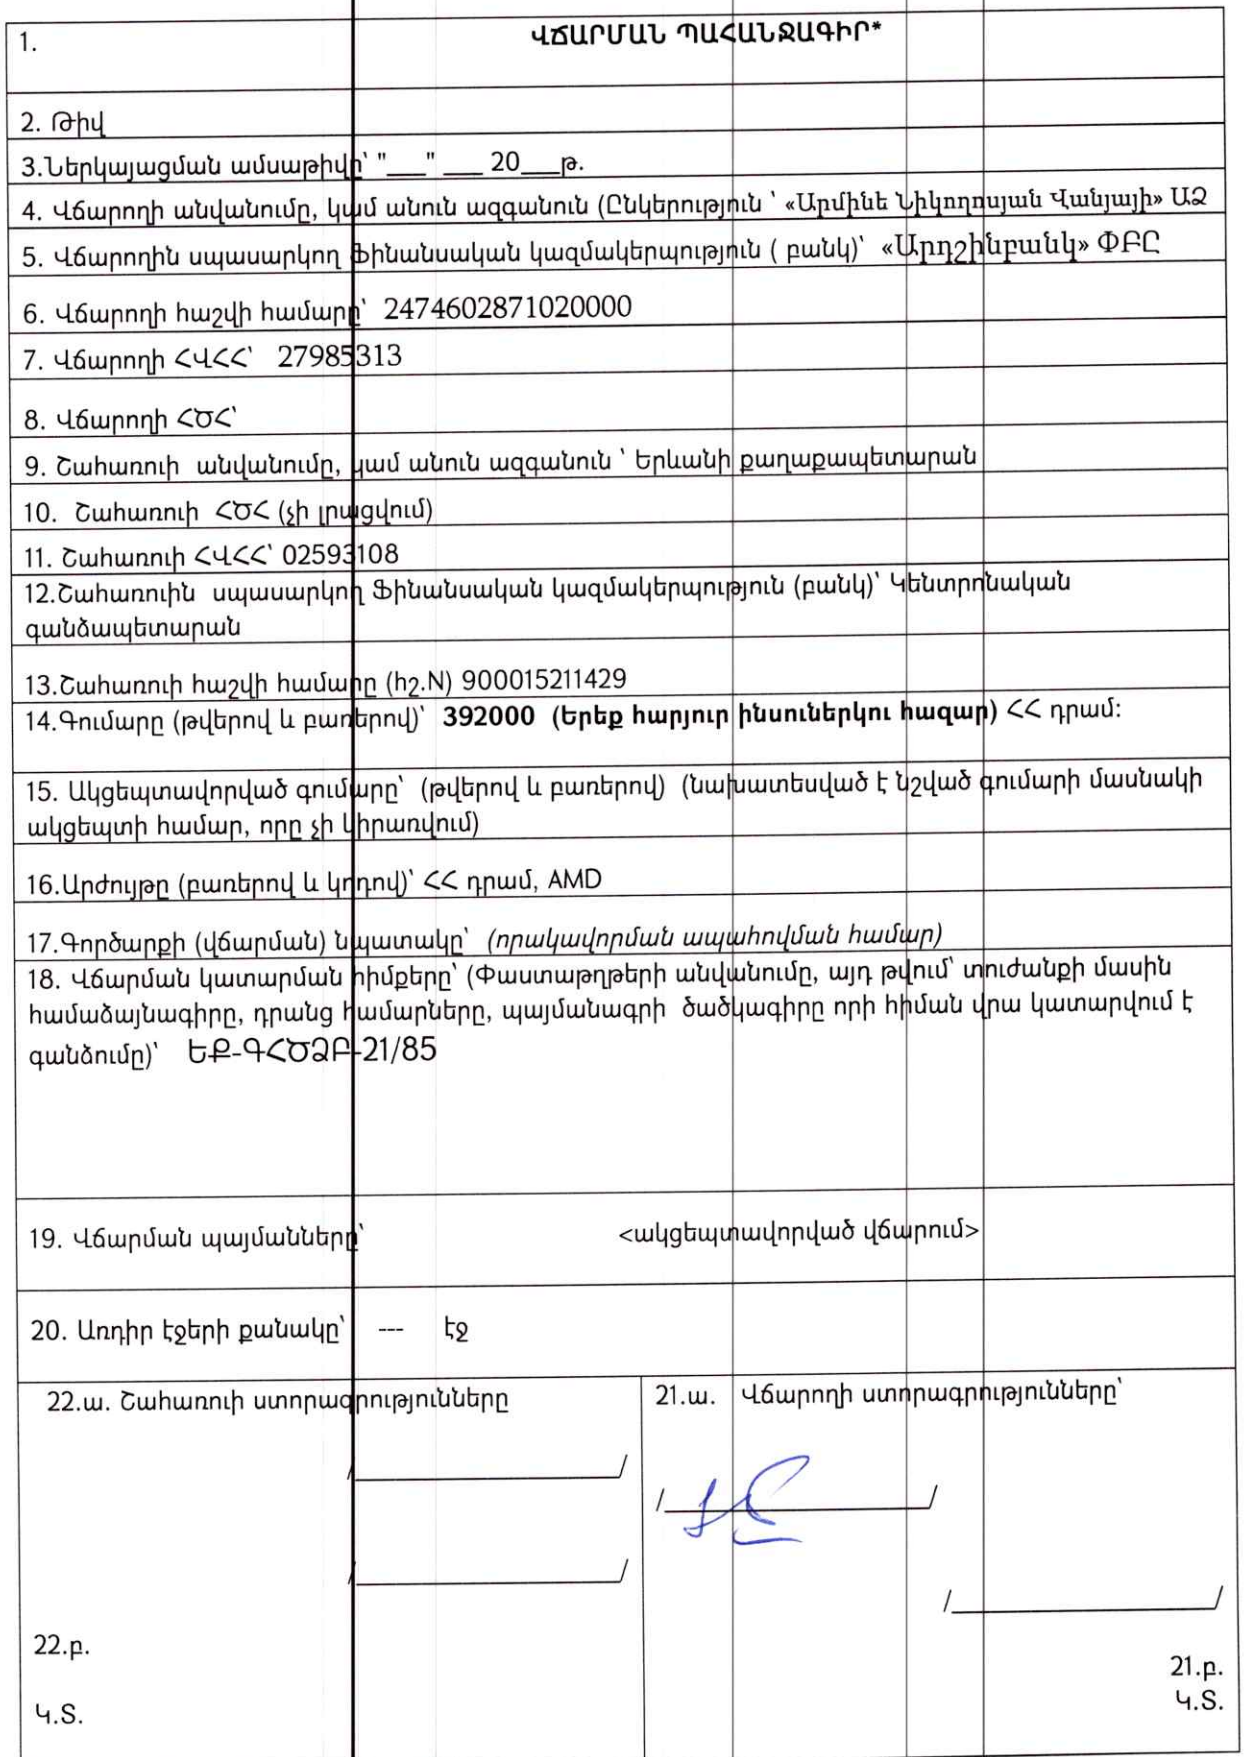 1. ՎՃԱՐՄԱՆ ՊԱՀԱՆՋԱԳԻՐ*
2. Թիվ
3.Ներկայացման ամսաթիվը՝ "___" ___ 20___թ.
4. Վճարողի անվանումը, կամ անուն ազգանուն (Ընկերություն ՝ «Արմինե Նիկողոսյան Վանյայի» ԱՁ
5. Վճարողին սպասարկող Ֆինանսական կազմակերպություն ( բանկ)՝ «Արդշինբանկ» ՓԲԸ
6. Վճարողի հաշվի համարը՝ 2474602871020000
7. Վճարողի ՀՎՀՀ՝ 27985313
8. Վճարողի ՀԾՀ՝
9. Շահառուի անվանումը, կամ անուն ազգանուն ՝ Երևանի քաղաքապետարան
10. Շահառուի ՀԾՀ (չի լրացվում)
11. Շահառուի ՀՎՀՀ՝ 02593108
12.Շահառուին սպասարկող Ֆինանսական կազմակերպություն (բանկ)՝ Կենտրոնական
գանձապետարան
13.Շահառուի հաշվի համարը (հշ.N) 900015211429
14.Գումարը (թվերով և բառերով)՝ 392000 (Երեք հարյուր ինսուներկու հազար) ՀՀ դրամ:
15. Ակցեպտավորված գումարը՝ (թվերով և բառերով) (նախատեսված է նշված գումարի մասնակի
ակցեպտի համար, որը չի կիրառվում)
16.Արժույթը (բառերով և կոդով)՝ ՀՀ դրամ, AMD
17.Գործարքի (վճարման) նպատակը՝ (որակավորման ապահովման համար)
18. Վճարման կատարման հիմքերը՝ (Փաստաթղթերի անվանումը, այդ թվում՝ տուժանքի մասին
համաձայնագիրը, դրանց համարները, պայմանագրի ծածկագիրը որի հիման վրա կատարվում է
գանձումը)՝ ԵՔ-ԳՀԾՁԲ-21/85
19. Վճարման պայմանները՝ <ակցեպտավորված վճարում>
20. Առդիր էջերի քանակը՝ --- էջ
22.ա. Շահառուի ստորագրությունները
/____________________/
/____________________/
22.բ.
Կ.Տ.
21.ա. Վճարողի ստորագրությունները՝
/____________________/
/____________________/
21.բ.
Կ.Տ.